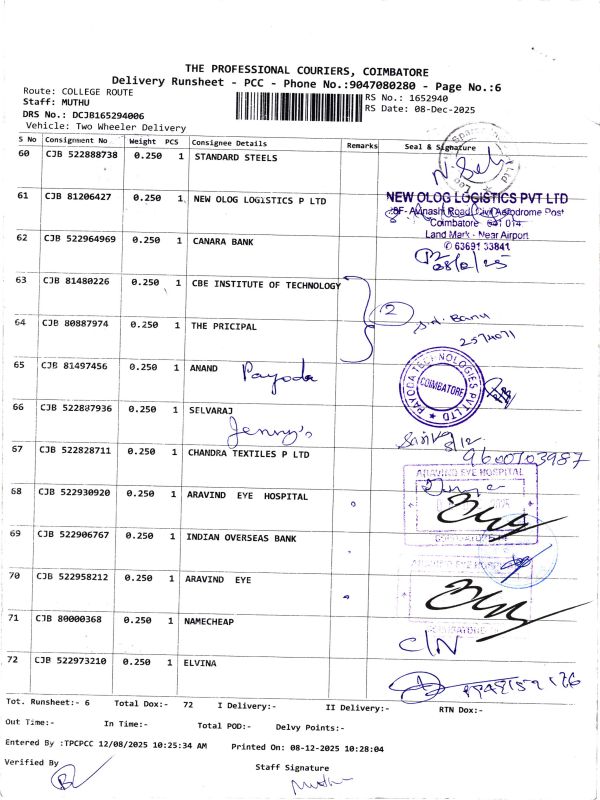 THE PROFESSIONAL COURIERS, COIMBATORE
Delivery Runsheet - PCC - Phone No.:9047080280 - Page No.:6
Route: COLLEGE ROUTE
Staff: MUTHU
RS No.: 1652940
DRS No.: DCJB165294006
RS Date: 08-Dec-2025
Vehicle: Two Wheeler Delivery
S No Consignment No Weight PCS Consignee Details Remarks Seal & Signature
60 CJB 522888738 0.250 1 STANDARD STEELS
61 CJB 81206427 0.250 1 NEW OLOG LOGISTICS P LTD
NEW OLOG LOGISTICS PVT LTD
Avinashi Road, Civil Aerodrome Post
Coimbatore 641 014
Land Mark - Near Airport
✆ 63691 33841
62 CJB 522964969 0.250 1 CANARA BANK
63 CJB 81480226 0.250 1 CBE INSTITUTE OF TECHNOLOGY
2
64 CJB 80887974 0.250 1 THE PRICIPAL
Banu
2574071
65 CJB 81497456 1 ANAND
Payoda
PAYODA TECHNOLOGIES PVT LTD
COIMBATORE
66 CJB 522887936 0.250 1 SELVARAJ
Jenny's
8/12
67 CJB 522828711 0.250 1 CHANDRA TEXTILES P LTD
9600703987
68 CJB 522930920 0.250 1 ARAVIND EYE HOSPITAL
ARAVIND EYE HOSPITAL
69 CJB 522906767 0.250 1 INDIAN OVERSEAS BANK
70 CJB 522958212 0.250 1 ARAVIND EYE
71 CJB 80000368 0.250 1 NAMECHEAP
C/N
72 CJB 522973210 0.250 1 ELVINA
Tot. Runsheet:- 6 Total Dox:- 72 I Delivery:- II Delivery:- RTN Dox:-
Out Time:- In Time:- Total POD:- Delvy Points:-
Entered By :TPCPCC 12/08/2025 10:25:34 AM Printed On: 08-12-2025 10:28:04
Verified By
Staff Signature